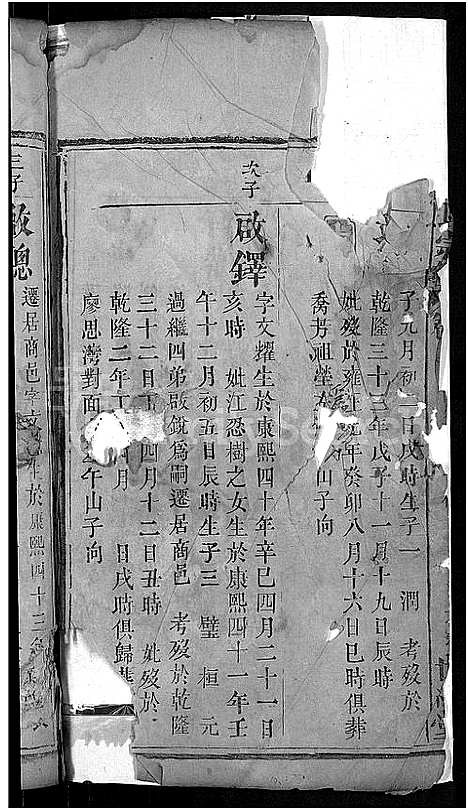 子元月初二日戌時生子一　潤　考歿於
乾隆三十三年戊子十一月十九日辰時
妣歿於雍正元年癸卯八月十六日巳時俱葬
喬芳祖塋山子向
次子
啟鐸
字文耀生於康熙四十年辛巳四月二十一日
亥時　妣江忍樹之女生於康熙四十一年壬
午十二月初五日辰時生子三　璧　桓　元
過繼四弟啟銳爲嗣遷居商邑　考歿於乾隆
三十二日四月十二日丑時　妣歿於
乾隆二年　月　日戌時俱歸葬
廖思灣對面午山子向
三子
啟聰
遷居商邑字文生於康熙四十三年